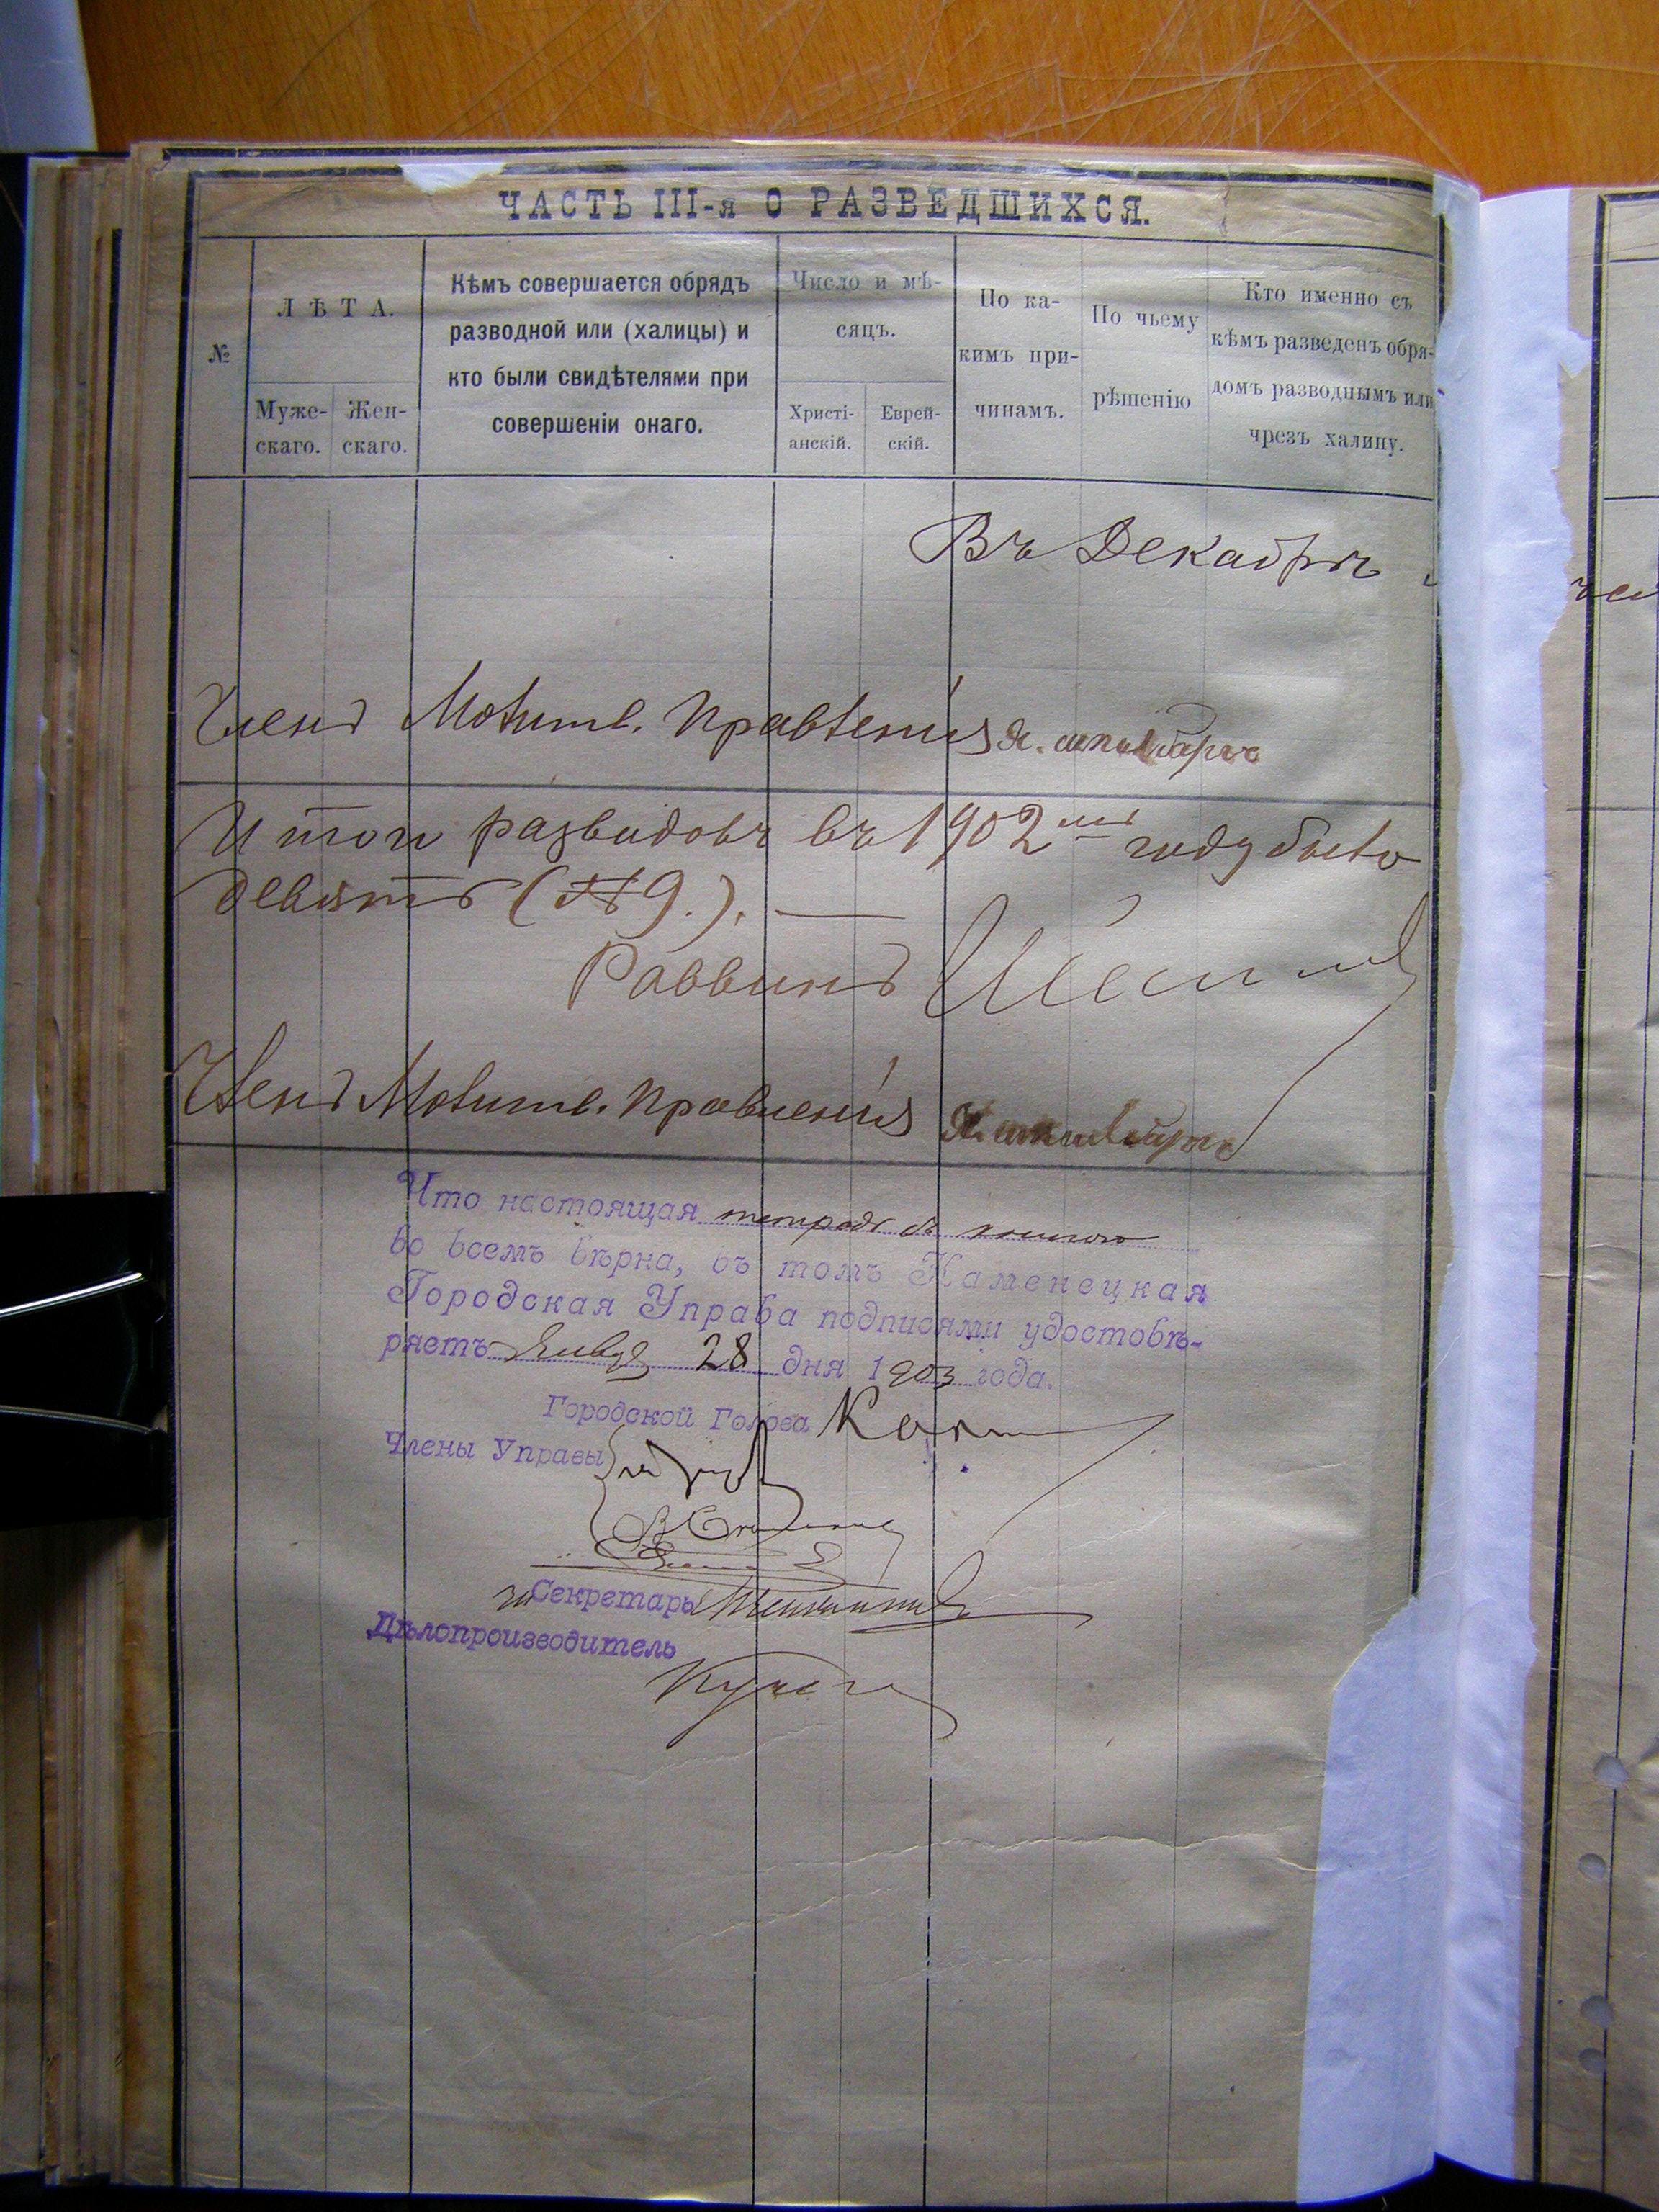 ЧАСТЬ III-я О РАЗВЕДШИХСЯ.
№
ЛѢТА.
Муже-
скаго.
Жен-
скаго.
Кѣмъ совершается обрядъ
разводной или (халицы) и
кто были свидѣтелями при
совершеніи онаго.
Число и мѣ-
сяцъ.
Христі-
анскій.
Еврей-
скій.
По ка-
кимъ при-
чинамъ.
По чьему
рѣшенію
Кто именно съ
кѣмъ разведенъ обря-
домъ разводнымъ или
чрезъ халицу.
Въ Декабрѣ
Членъ Молитв. Правленія Я.
Итого разводовъ въ 1902мъ году было
девять (№ 9.). —
Раввинъ
Членъ Молитв. Правленія Я.
Что настоящая тетрадь съ книгою
во всемъ вѣрна, въ томъ Каменецкая
Городская Управа подписями удостовѣ-
ряетъ Января 28 дня 1903 года.
Городской Голова
Члены Управы
за Секретарь
Дѣлопроизводитель